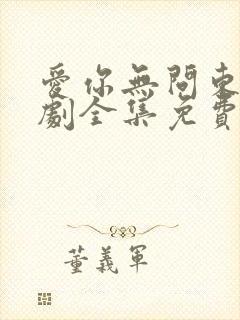 愛你無問東
劇全集免費
董義軍